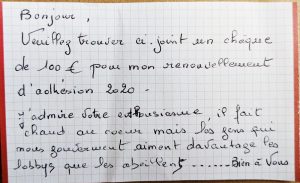 Bonjour,
Veuillez trouver ci-joint un chèque
de 100 € pour mon renouvellement
d'adhésion 2020.
j'admire votre enthousiasme, il fait
chaud au coeur mais les gens qui
nous gouvernent aiment davantage les
lobbys que les abeilles....... Bien à Vous